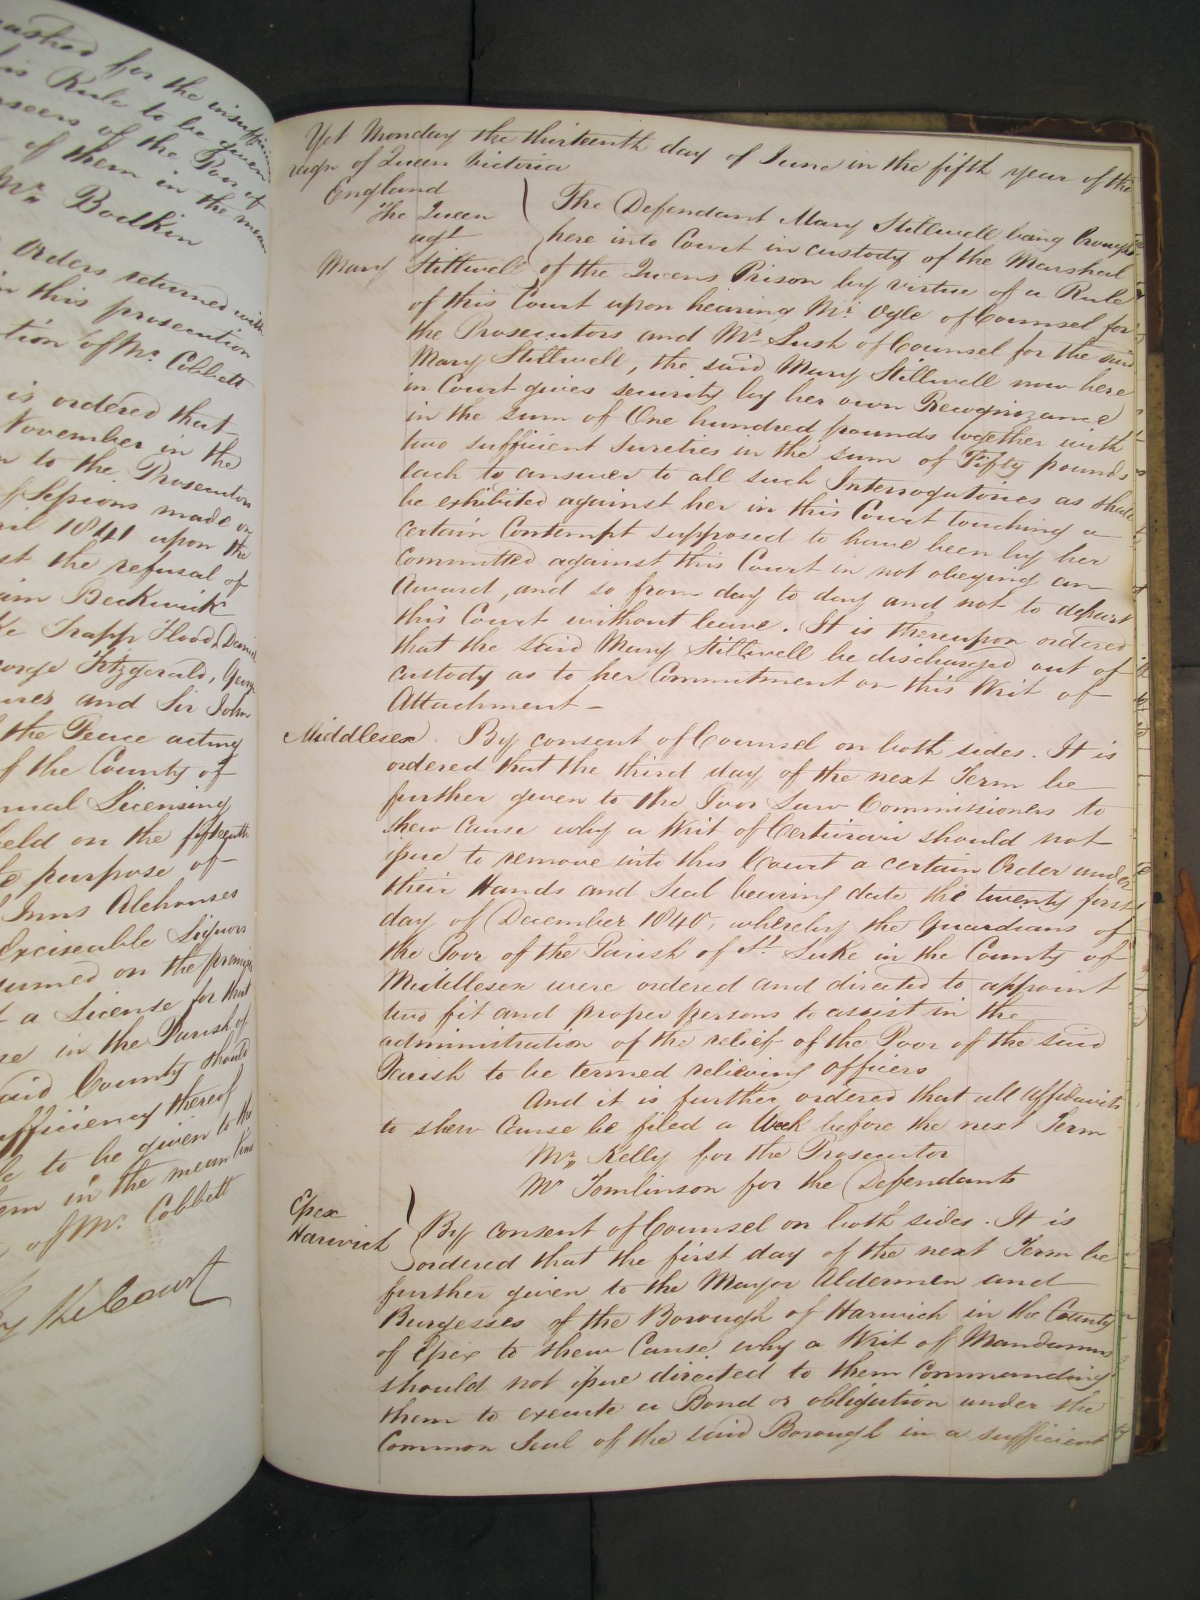 for the insuffici
Rule to be given
of the Poor of
of them in the mean
Mr. Bodkin
Orders returned with
in this prosecution
of Mr. Cobbett
is ordered that
November in the
to the Prosecutors
Sessions made on
1841 upon the
the refusal of
Beckwick
Trapp Flood, Daniel
Fitzgerald,
and Sir John
the Peace acting
of the County of
Licensing
held on the fifteenth
purpose of
Inns Alehouses
Exciseable Liquors
on the premises
a License for that
in the Parish of
said County should
thereof
to be given to the
in the mean time
of Mr. Cobbett
By the Court
Yet Monday the thirteenth day of June in the fifth year of the
reign of Queen Victoria
England
The Queen
agt
Mary Stillwell
The Defendant Mary Stillwell being brought
here into Court in custody of the Marshal
of the Queens Prison by virtue of a Rule
of this Court upon hearing Mr. Ogle of Counsel for
the Prosecutors and Mr. Lush of Counsel for the said
Mary Stillwell, the said Mary Stillwell now here
in Court gives security by her own Recognizance
in the Sum of One hundred pounds together with
two sufficient Sureties in the sum of Fifty pounds
each to answer to all such Interrogatories as shall
be exhibited against her in this Court touching a
certain Contempt supposed to have been by her
Committed against this Court in not obeying an
Award, and so from day to day and not to depart
this Court without leave. It is thereupon ordered
that the said Mary Stillwell be discharged out of
custody as to her Commitment on this Writ of
Attachment -
Middlesex. By consent of Counsel on both sides. It is
ordered that the third day of the next Term be
further given to the Poor Law Commissioners to
shew Cause why a Writ of Certiorari should not
issue to remove into this Court a certain Order under
their Hands and Seal bearing date the twenty first
day of December 1840, whereby the Guardians of
the Poor of the Parish of St. Luke in the County of
Middlesex were ordered and directed to appoint
two fit and proper persons to assist in the
administration of the relief of the Poor of the said
Parish to be termed relieving officers
And it is further ordered that all affidavits
to shew Cause be filed a Week before the next Term
Mr. Kelly for the Prosecutor
Mr. Tomlinson for the Defendants
Essex
Harwich
By consent of Counsel on both sides. It is
ordered that the first day of the next Term be
further given to the Mayor Aldermen and
Burgesses of the Borough of Harwich in the County
of Essex to shew Cause why a Writ of Mandamus
should not issue directed to them Commanding
them to execute a Bond or obligation under the
Common Seal of the said Borough in a sufficient